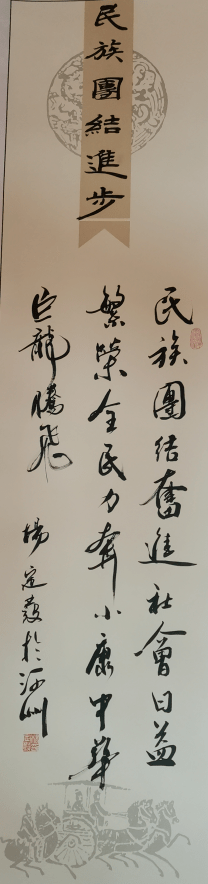 民族團結進步
民族團结奮進社會日益
繁荣全民力奔小康中華
巨龍騰飛
楊定發於河州